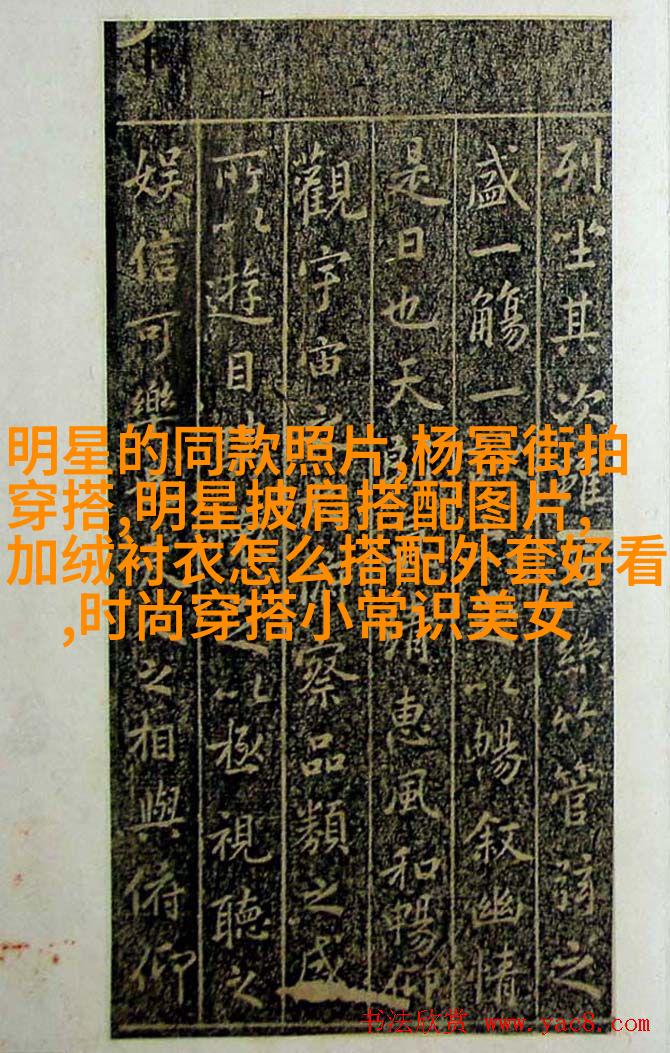 列坐其次雖絲竹管弦之
盛一觴一以暢叙幽情
是日也天清惠風和暢仰
觀宇宙之察品類之盛
所以遊目以極視聽之
娱信可樂之相與俯仰
明星的同款照片,杨幂街拍
穿搭,明星披肩搭配图片,
加绒衬衣怎么搭配外套好看
,时尚穿搭小常识美女
书法欣赏 www.yac8.com